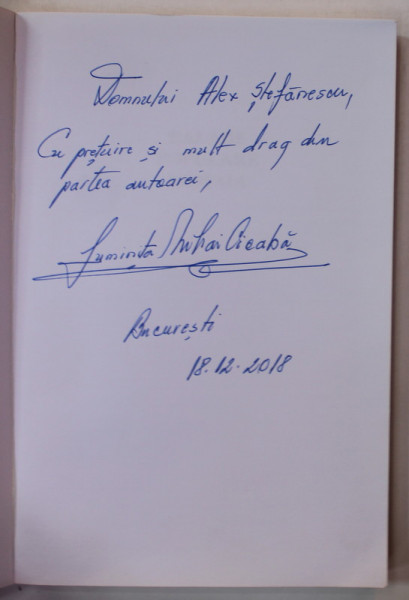 Domnului Alex Ștefănescu,
Cu prețuire și mult drag din
partea autoarei,
Luminița Mihai Cioabă
București
18.12.2018